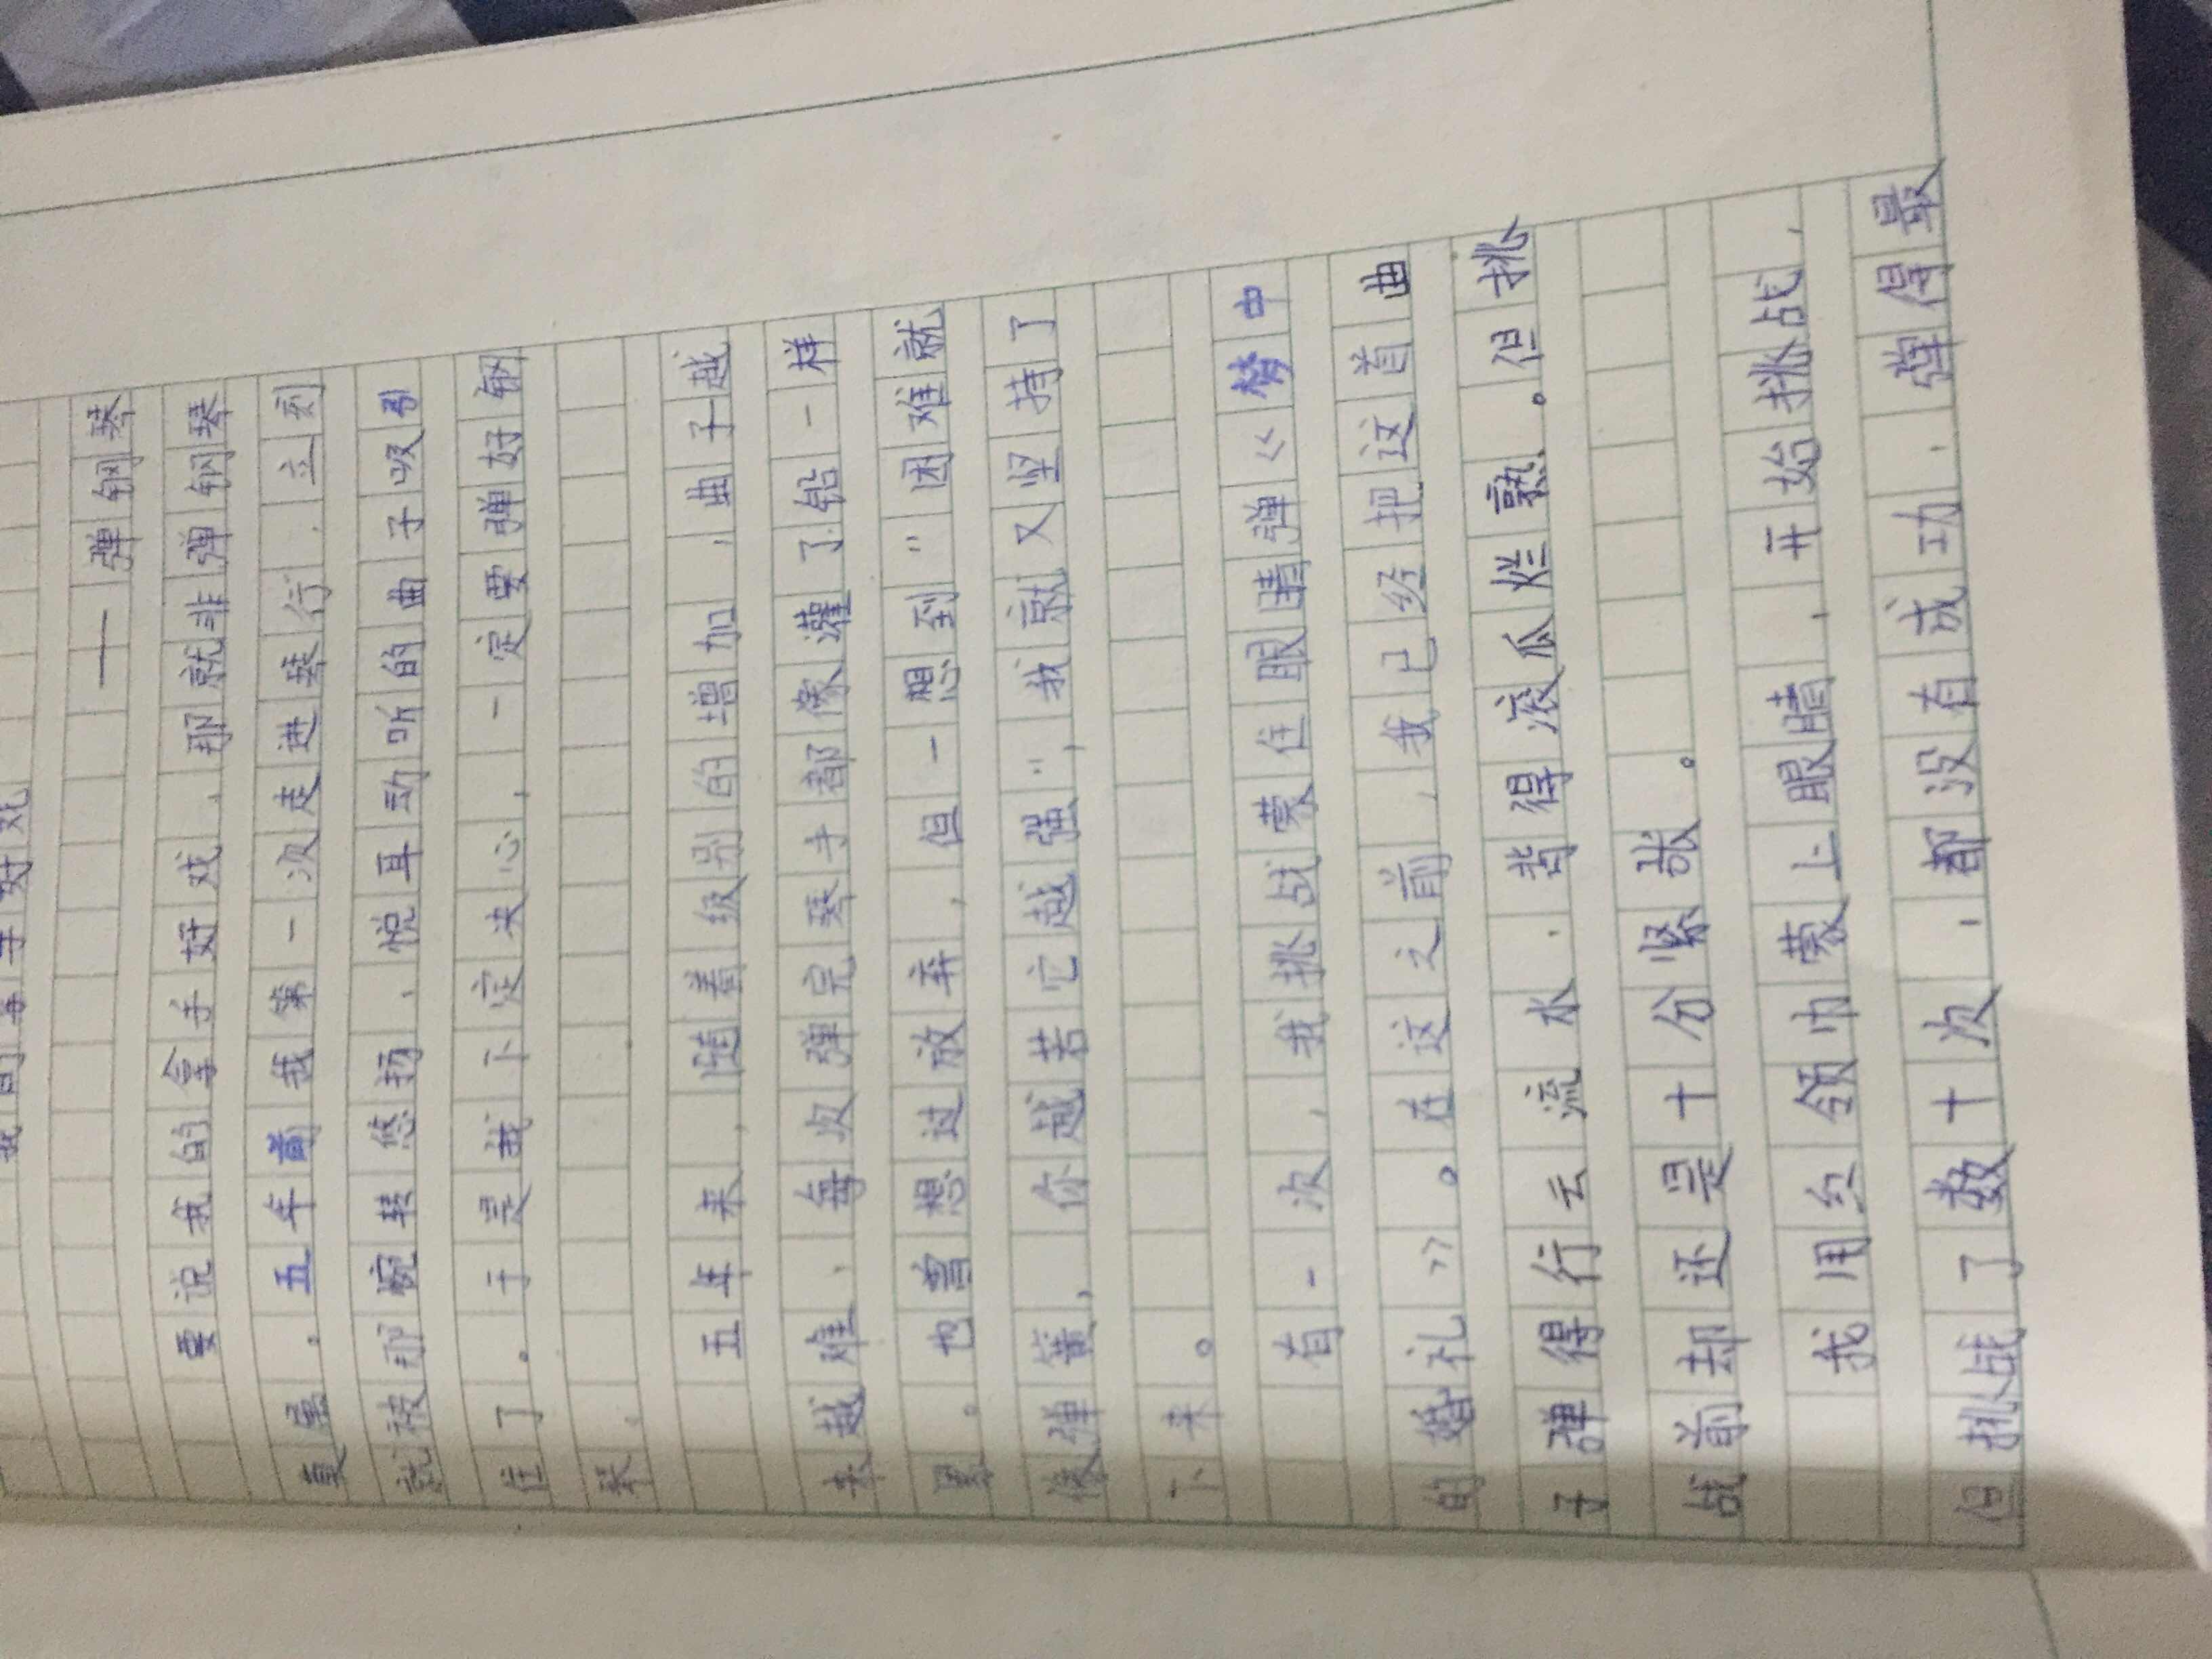 我的拿手好戏
——弹钢琴
要说我的拿手好戏,那就非弹钢琴
莫属。五年前我第一次走进琴行,立刻
就被那婉转悠扬、悦耳动听的曲子吸引
住了。于是我下定决心,一定要弹好钢
琴。
五年来,随着级别的增加,曲子越
来越难,每次弹完琴手都像灌了铅一样
累。也曾想过放弃,但一想到"困难就
像弹簧,你越若它越强",我就又坚持了
下来。
有一次,我挑战蒙住眼睛弹《梦中
的婚礼》。在这之前,我已经把这首曲
子弹得行云流水,背得滚瓜烂熟。但挑
战前却还是十分紧张。
我用红领巾蒙上眼睛,开始挑战,
但挑战了数十次,都没有成功,弹得最